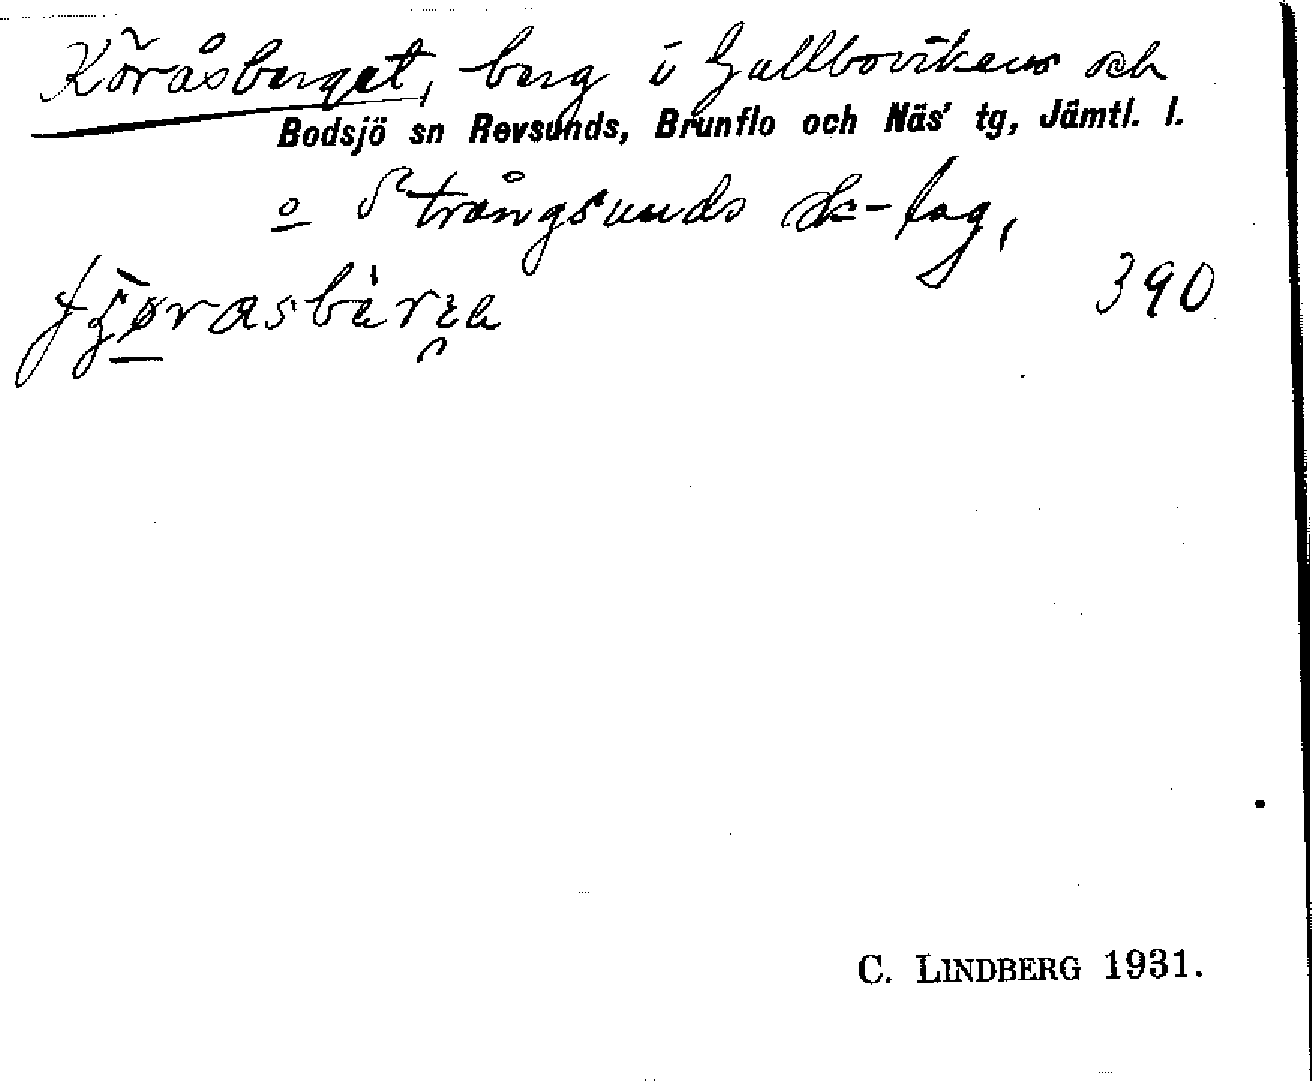 Köråsberget, berg i Gallbovikens sk
Bodsjö sn Revsunds, Brunflo och Näs' tg, Jämtl. l.
o Strångsunds sk-lag,
390
C. LINDBERG 1931.